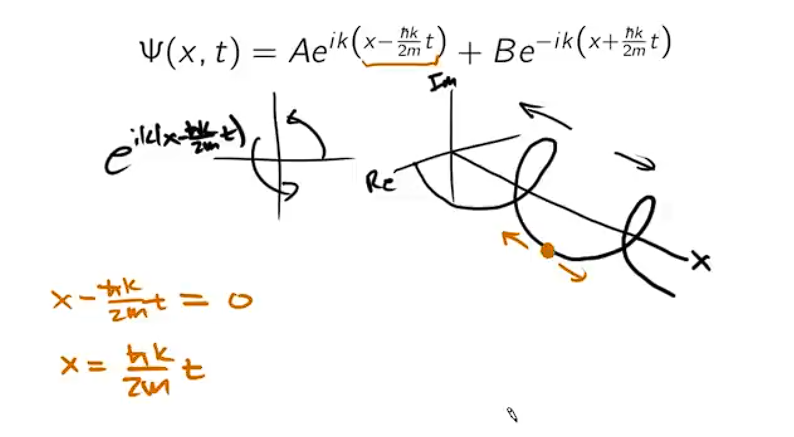 Ψ(x, t) = Ae^{ik(x−\frac{ℏk}{2m}t)} + Be^{−ik(x+\frac{ℏk}{2m}t)}
Im
e^{ik(x−\frac{ℏk}{2m}t)}
Re
x
x − \frac{ℏk}{2m}t = 0
x = \frac{ℏk}{2m}t